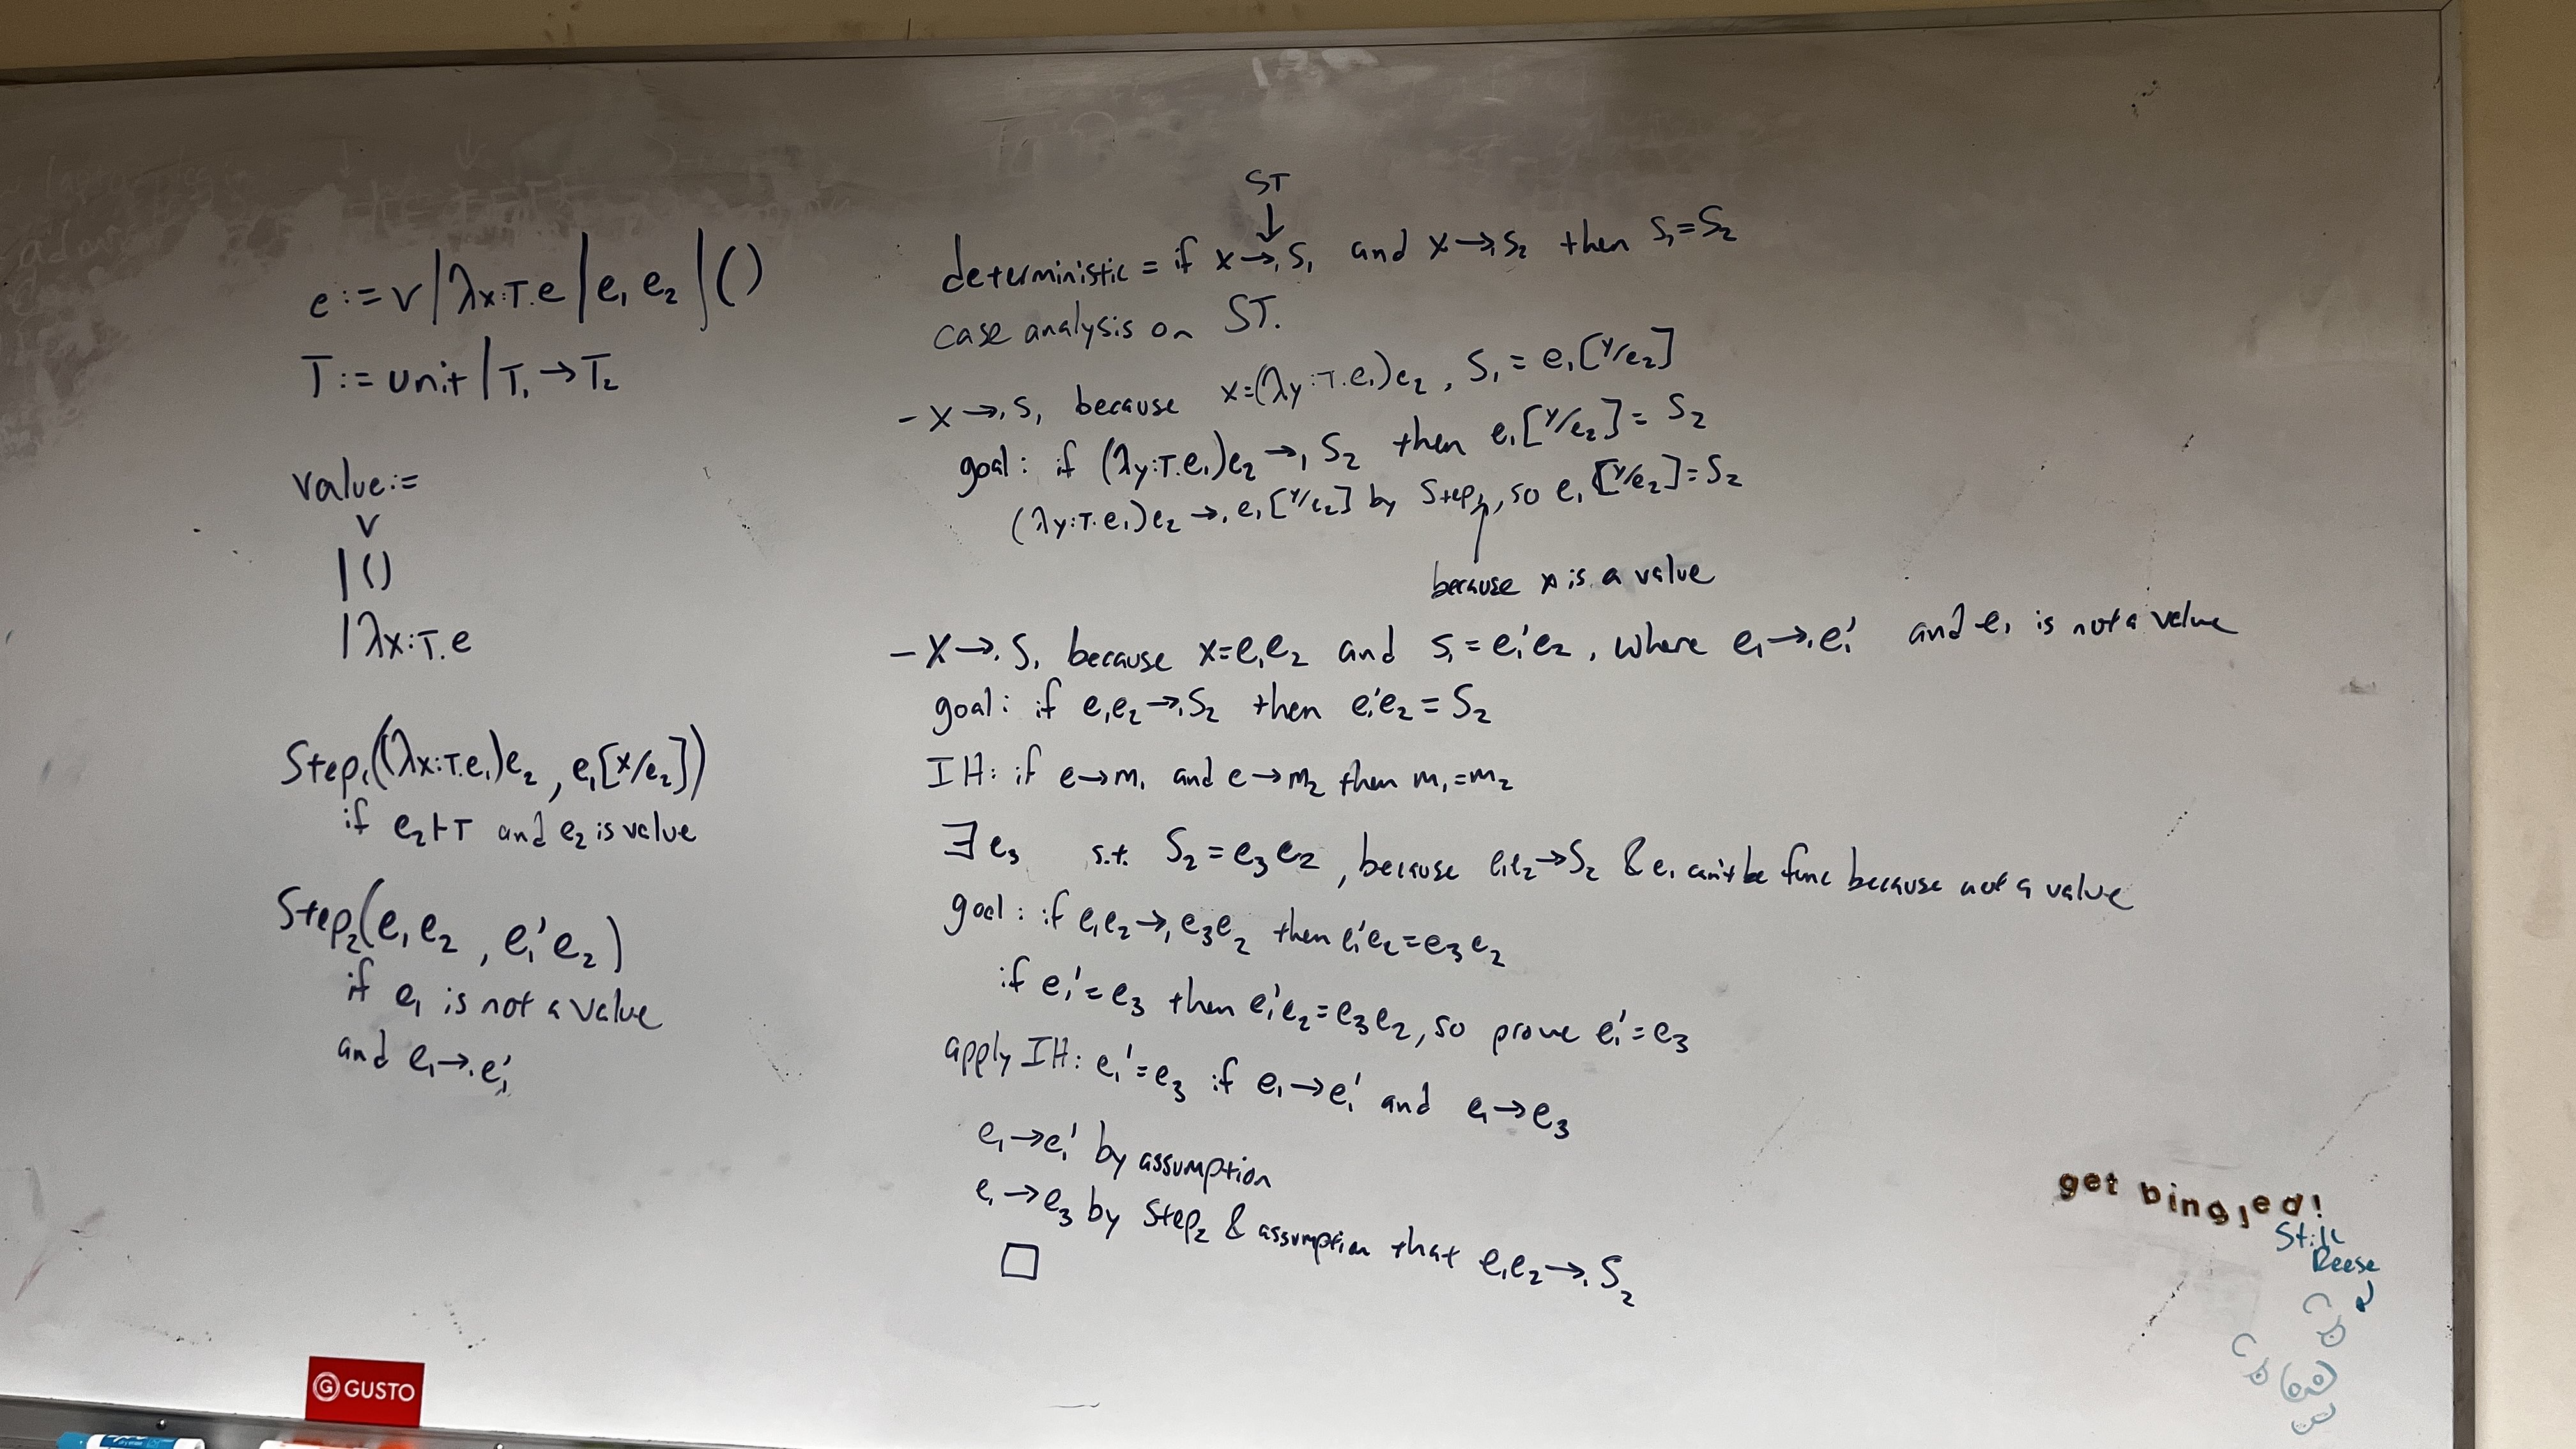 e := v | λx:T.e | e₁ e₂ | ()
T := unit | T₁ → T₂
value :=
v
| ()
| λx:T.e
Step₁((λx:T.e₁)e₂, e₁[x/e₂])
if e₂⊢T and e₂ is value
Step₂(e₁e₂, e₁'e₂)
if e₁ is not a value
and e₁→₁e₁'
ST
↓
deterministic = if x→₁S₁ and x→₁S₂ then S₁=S₂
case analysis on ST.
- x→₁S₁ because x=(λy:T.e₁)e₂, S₁ = e₁[y/e₂]
goal: if (λy:T.e₁)e₂ →₁ S₂ then e₁[y/e₂] = S₂
(λy:T.e₁)e₂ →₁ e₁[y/e₂] by Step₁, so e₁[y/e₂]=S₂
because is a value
- x→₁S₁ because x=e₁e₂ and S₁=e₁'e₂, where e₁→₁e₁' and e₁ is not a value
goal: if e₁e₂→₁S₂ then e₁'e₂ = S₂
IH: if e→m₁ and e→m₂ then m₁=m₂
∃e₃ s.t. S₂=e₃e₂, because e₁e₂→S₂ & e₁ can't be func because not a value
goal: if e₁e₂→₁e₃e₂ then e₁'e₂=e₃e₂
if e₁'=e₃ then e₁'e₂=e₃e₂, so prove e₁'=e₃
apply IH: e₁'=e₃ if e₁→e₁' and e₁→e₃
e₁→e₁' by assumption
e₁→e₃ by Step₂ & assumption that e₁e₂→₁S₂
□
get bingled!
Still
Reese
G GUSTO